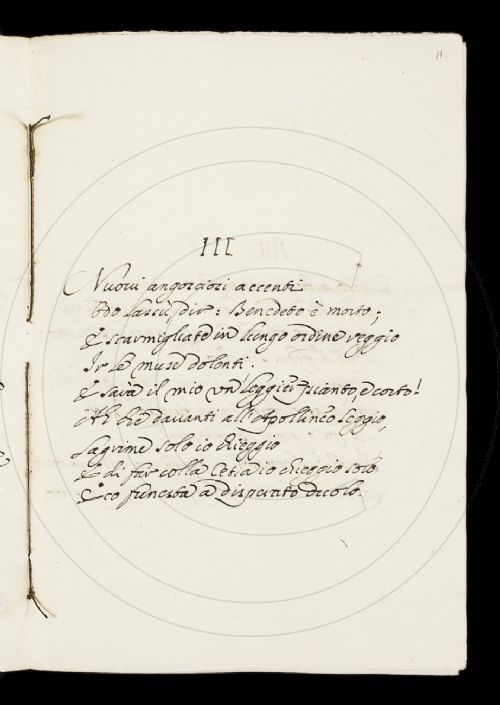 11
III
Nuovi angosciosi accenti
Odo lassù, dir: Benedetto è morto;
E scarmigliate in lungo ordine veggio
Ir le muse dolenti.
E sarà il mio un leggier pianto, e corto!
Ah che davanti all'Apollineo seggio,
Lagrime solo io chieggio
E di far colla Cetra io chieggio solo
Eco funesta a disperato duolo.